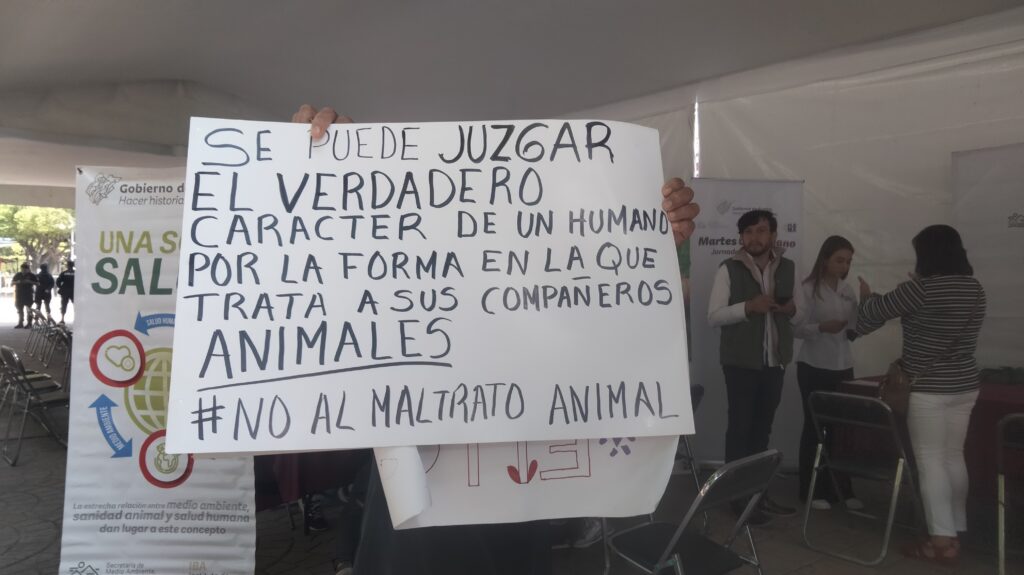 SE PUEDE JUZGAR
EL VERDADERO
CARACTER DE UN HUMANO
POR LA FORMA EN LA QUE
TRATA A SUS COMPAÑEROS
ANIMALES
#NO AL MALTRATO ANIMAL
Gobierno de
Hacer historia
UNA
SAL
SALUD
MEDIO AMBIENTE
La estrecha relación entre medio ambiente,
sanidad animal y salud humana
dan lugar a este concepto
Secretaría de
Medio Ambiente,
Martes